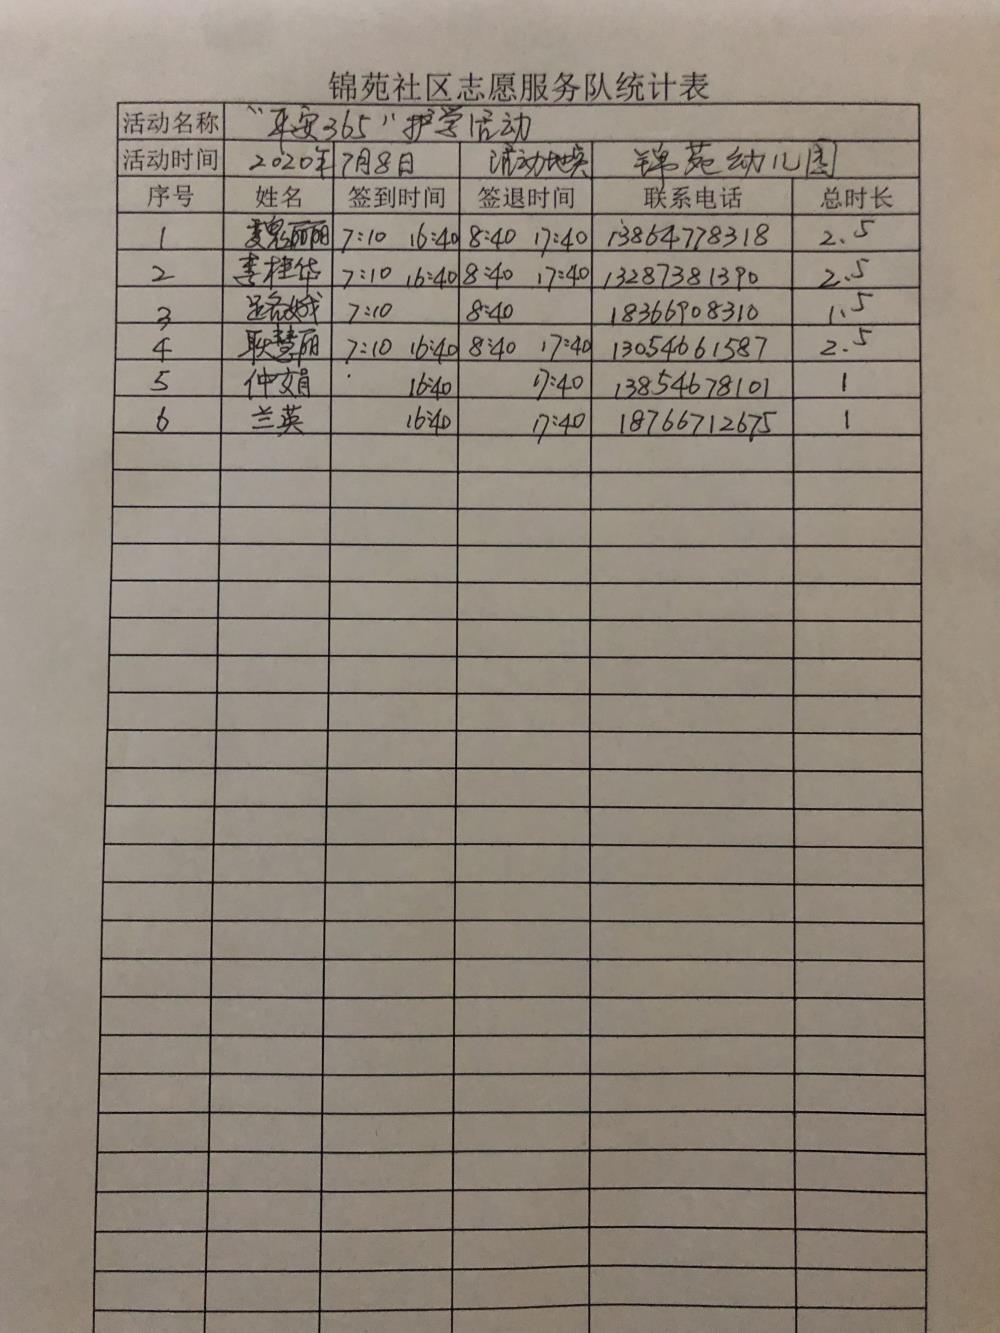 锦苑社区志愿服务队统计表
活动名称 "平安365"护学活动
活动时间 2020年7月8日 活动地点 锦苑幼儿园
序号 姓名 签到时间 签退时间 联系电话 总时长
1 魏丽丽 7:10 16:40 8:40 17:40 13864778318 2.5
2 李桂华 7:10 16:40 8:40 17:40 13287381390 2.5
3 7:10 8:40 18366908310 1.5
4 耿慧丽 7:10 16:40 8:40 17:40 13054661587 2.5
5 仲文娟 16:40 17:40 13854678101 1
6 兰英 16:40 17:40 18766712675 1